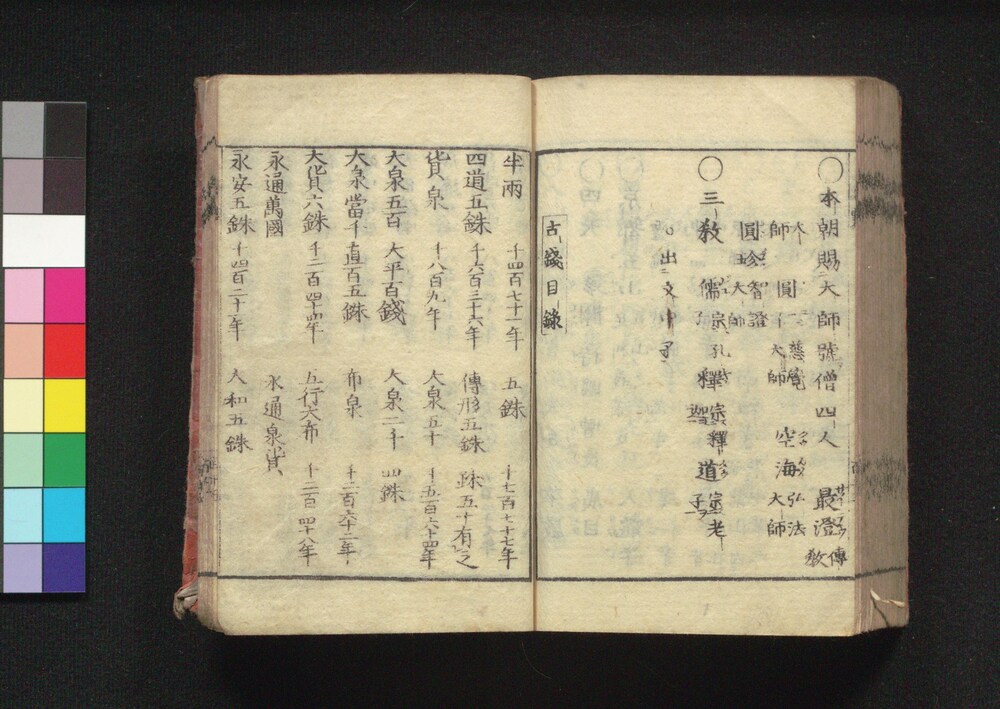 〇本朝賜ニ大師號僧四人 最澄 傳教
大師 圓仁 慈覺大師 空海 弘法大師
圓珍 智證大師
〇三教 儒 宗孔子 釋 宗釋迦 道 宗老子
〇出ニ文中子
古錢目錄
半兩 千四百七十一年 五銖 千七百七十七年
四道五銖 千六百三十六年 傳形五銖 銖五十有之
貨泉 千八百九年 大泉五十 千五百六十四年
大泉五百 大平百錢 大泉二千 四銖
大泉當千 直百五銖 布泉 千二百六十二年
大貨六銖 千二百四十四年 五行大布 千二百四十八年
永通萬國 永通泉貨
永安五銖 千四百二十二年 大和五銖